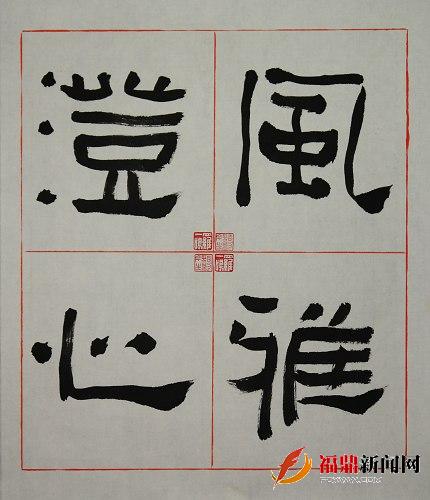 風雅
澄心
福鼎新闻网